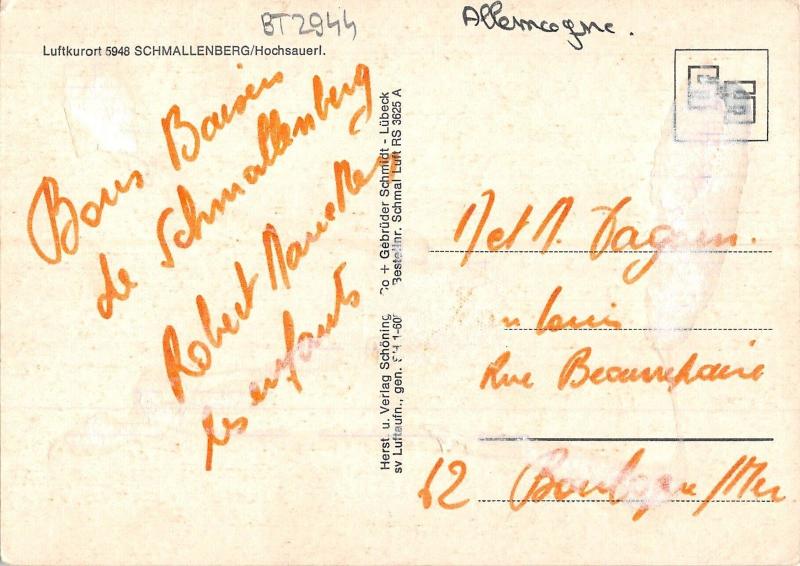 BT2944
Allemagne.
Luftkurort 5948 SCHMALLENBERG/Hochsauerl.
Bons Baisers
de Schmallenberg
Robert
les enfants
Herst. u. Verlag Schöning & Co + Gebrüder Schmidt - Lübeck
sv Luftaufn., gen. 1-60 Bestellnr. Schmal Luft RS 3625 A
M et M.
Rue Beaurepaire
62 Boulogne/Mer